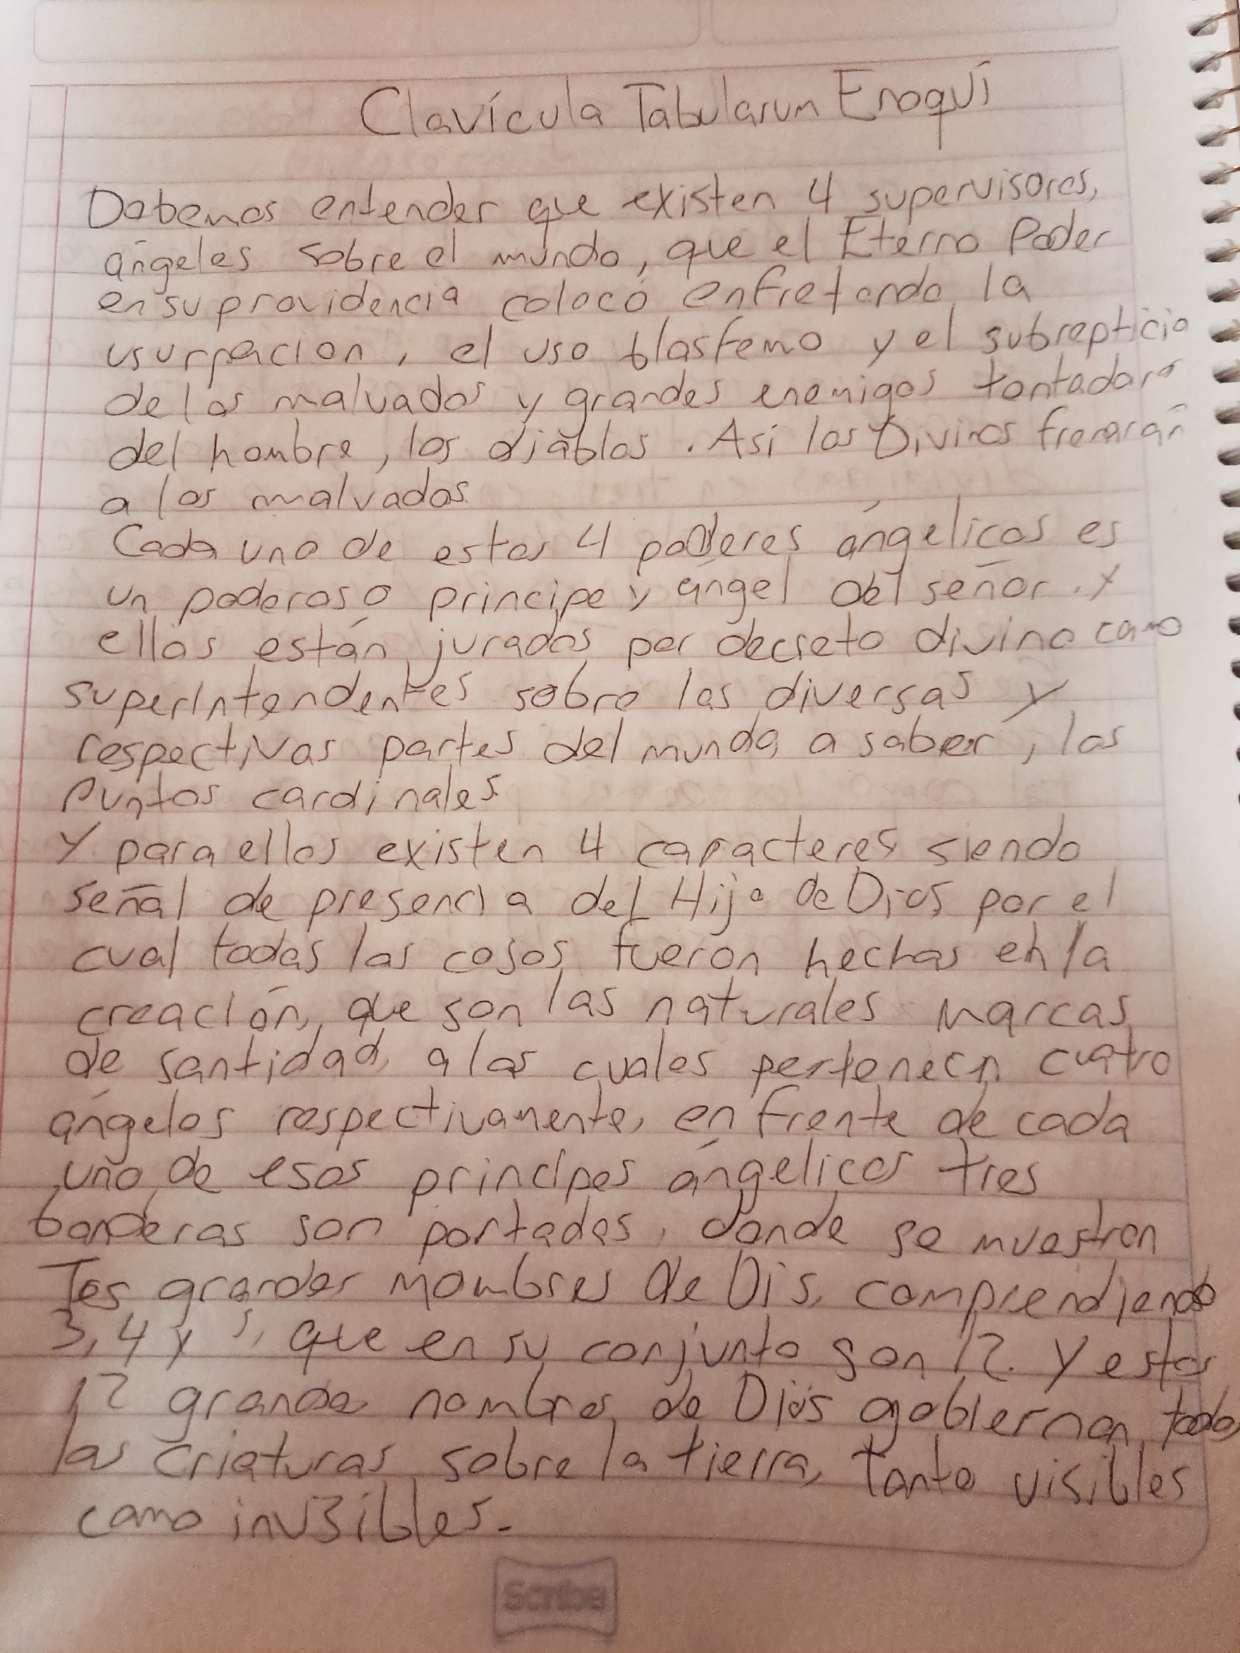 Clavícula Tabularum Enoqui
Debemos entender que existen 4 supervisores,
ángeles sobre el mundo, que el Eterno Poder
en su providencia colocó enfretando la
usurpación, el uso blasfemo y el subrepticio
de los malvados y grandes enemigos tentadors
del hombre, los diablos. Así los Divinos frenarán
a los malvados
Cada uno de estos 4 poderes ángelicos es
un poderoso principe y ángel del señor. Y
ellos están jurados por decreto divino como
superintendentes sobre las diversas y
respectivas partes del mundo a saber, los
Puntos cardinales
Y para ellos existen 4 caracteres siendo
señal de presencia del Hijo de Dios por el
cual todas las cosas fueron hechas en la
creación, que son las naturales Marcas
de santidad, a los cuales pertenecn cuatro
ángeles respectivamente, en frente de cada
uno de esos principes ángelicos tres
banderas son portadas, donde se muestran
Tes grandes nombres de Dis, comprendiendo
3, 4 y 5, que en su conjunto son 12. Y estos
12 grande nombres de Dios gobiernan todas
las criaturas sobre la tierra, tanto visibles
como invsibles.
Scribe